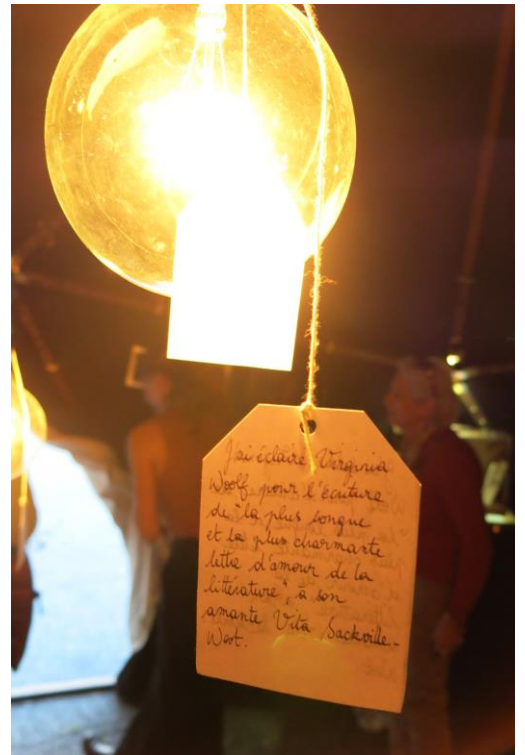 J'ai éclairé Virginia
Woolf pour l'écriture
de "la plus longue
et la plus charmante
lettre d'amour de la
littérature", à son
amante Vita Sackville-
West.